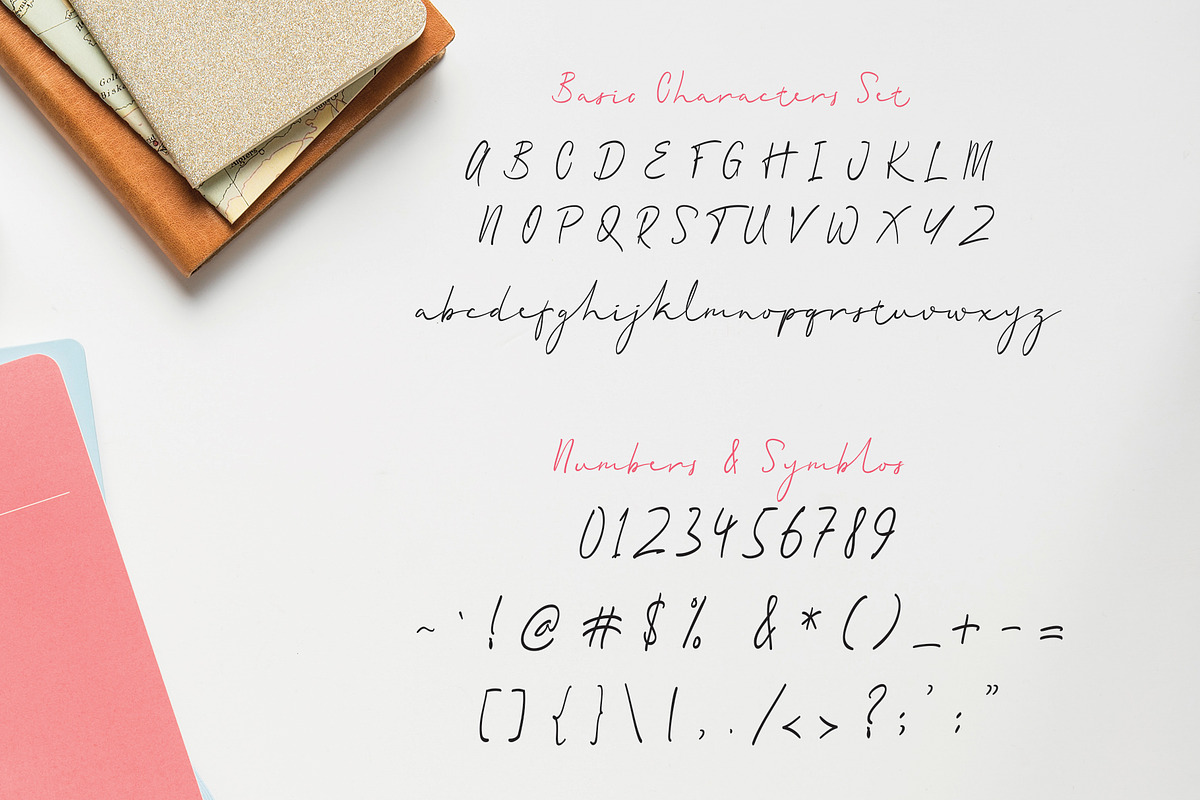 Basic Characters Set
A B C D E F G H I J K L M
N O P Q R S T U V W X Y Z
abcdefghijklmnopqrstuvwxyz
Numbers & Symblos
0123456789
~ ` ! @ # $ % & * ( ) _ + - =
[ ] { } \ | , . / < > ? ; ’ ; ”